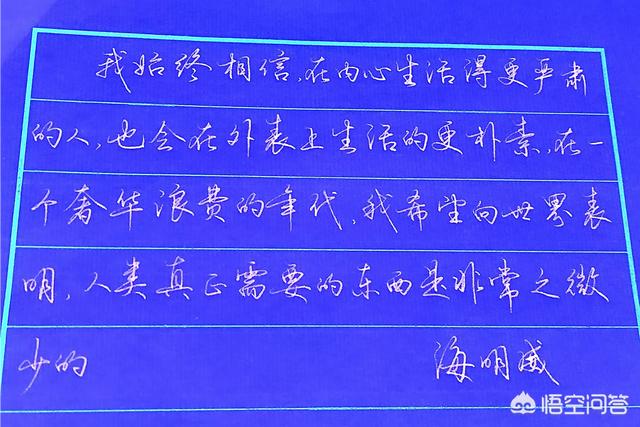 我始终相信,在内心生活得更严肃
的人,也会在外表上生活的更朴素,在一
个奢华浪费的年代,我希望向世界表
明,人类真正需要的东西是非常之微
少的
海明威
悟空问答